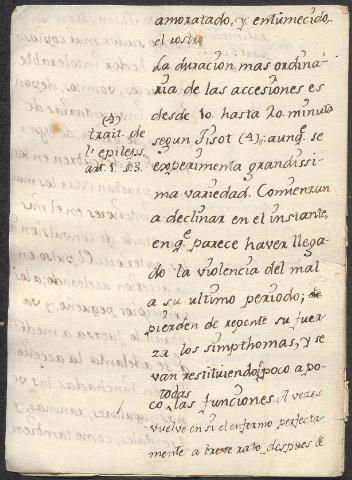 amoratado, y entumecido,
el rostro.
La duracion mas ordina-
ria de las accesiones es
desde 10. hasta 20. minuto
segun Tisot (4); aunq.e se
experimenta grandissi-
ma variedad. Comienzan
a declinar en el instante,
en q.e parece haver llega-
do la violencia del mal
a su ultimo periodo;
pierden de repente su fuer-
za los simpthomas, y se
van restituiendo poco a po-
co todas las funciones. A vezes
vuelve en si el enfermo perfecta-
mente a breve rato, despues de
(4)
trait. de
l' epileps.
art. 1. §3.